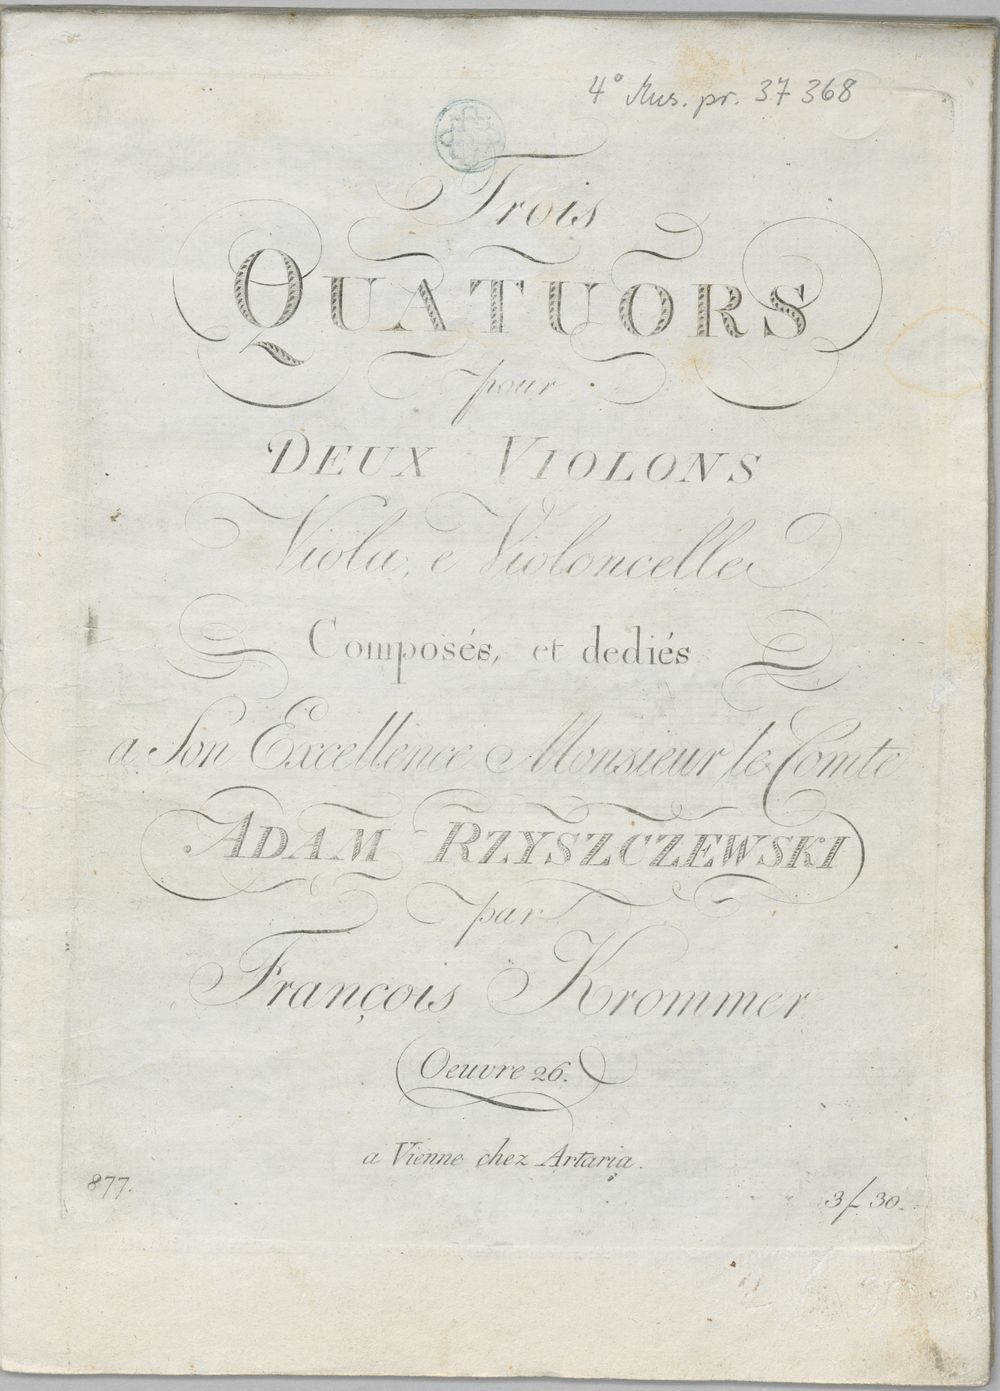 4° Mus. pr. 37 368
Trois
QUATUORS
pour
DEUX VIOLONS
Viola, e Violoncelle
Composés, et dediés
a Son Excellence Monsieur le Comte
ADAM RZYSZCZEWSKI
par
François Krommer
Oeuvre 26.
a Vienne chez Artaria.
877.
3f 30.